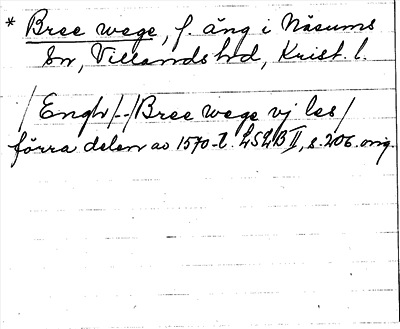 * Bree wege, f. äng i Näsums
sn, Villands hd, Krist. l.
/Engh/--/Bree wege vj les/
förra delen av 1570-t. LSLB II, s. 206. orig.